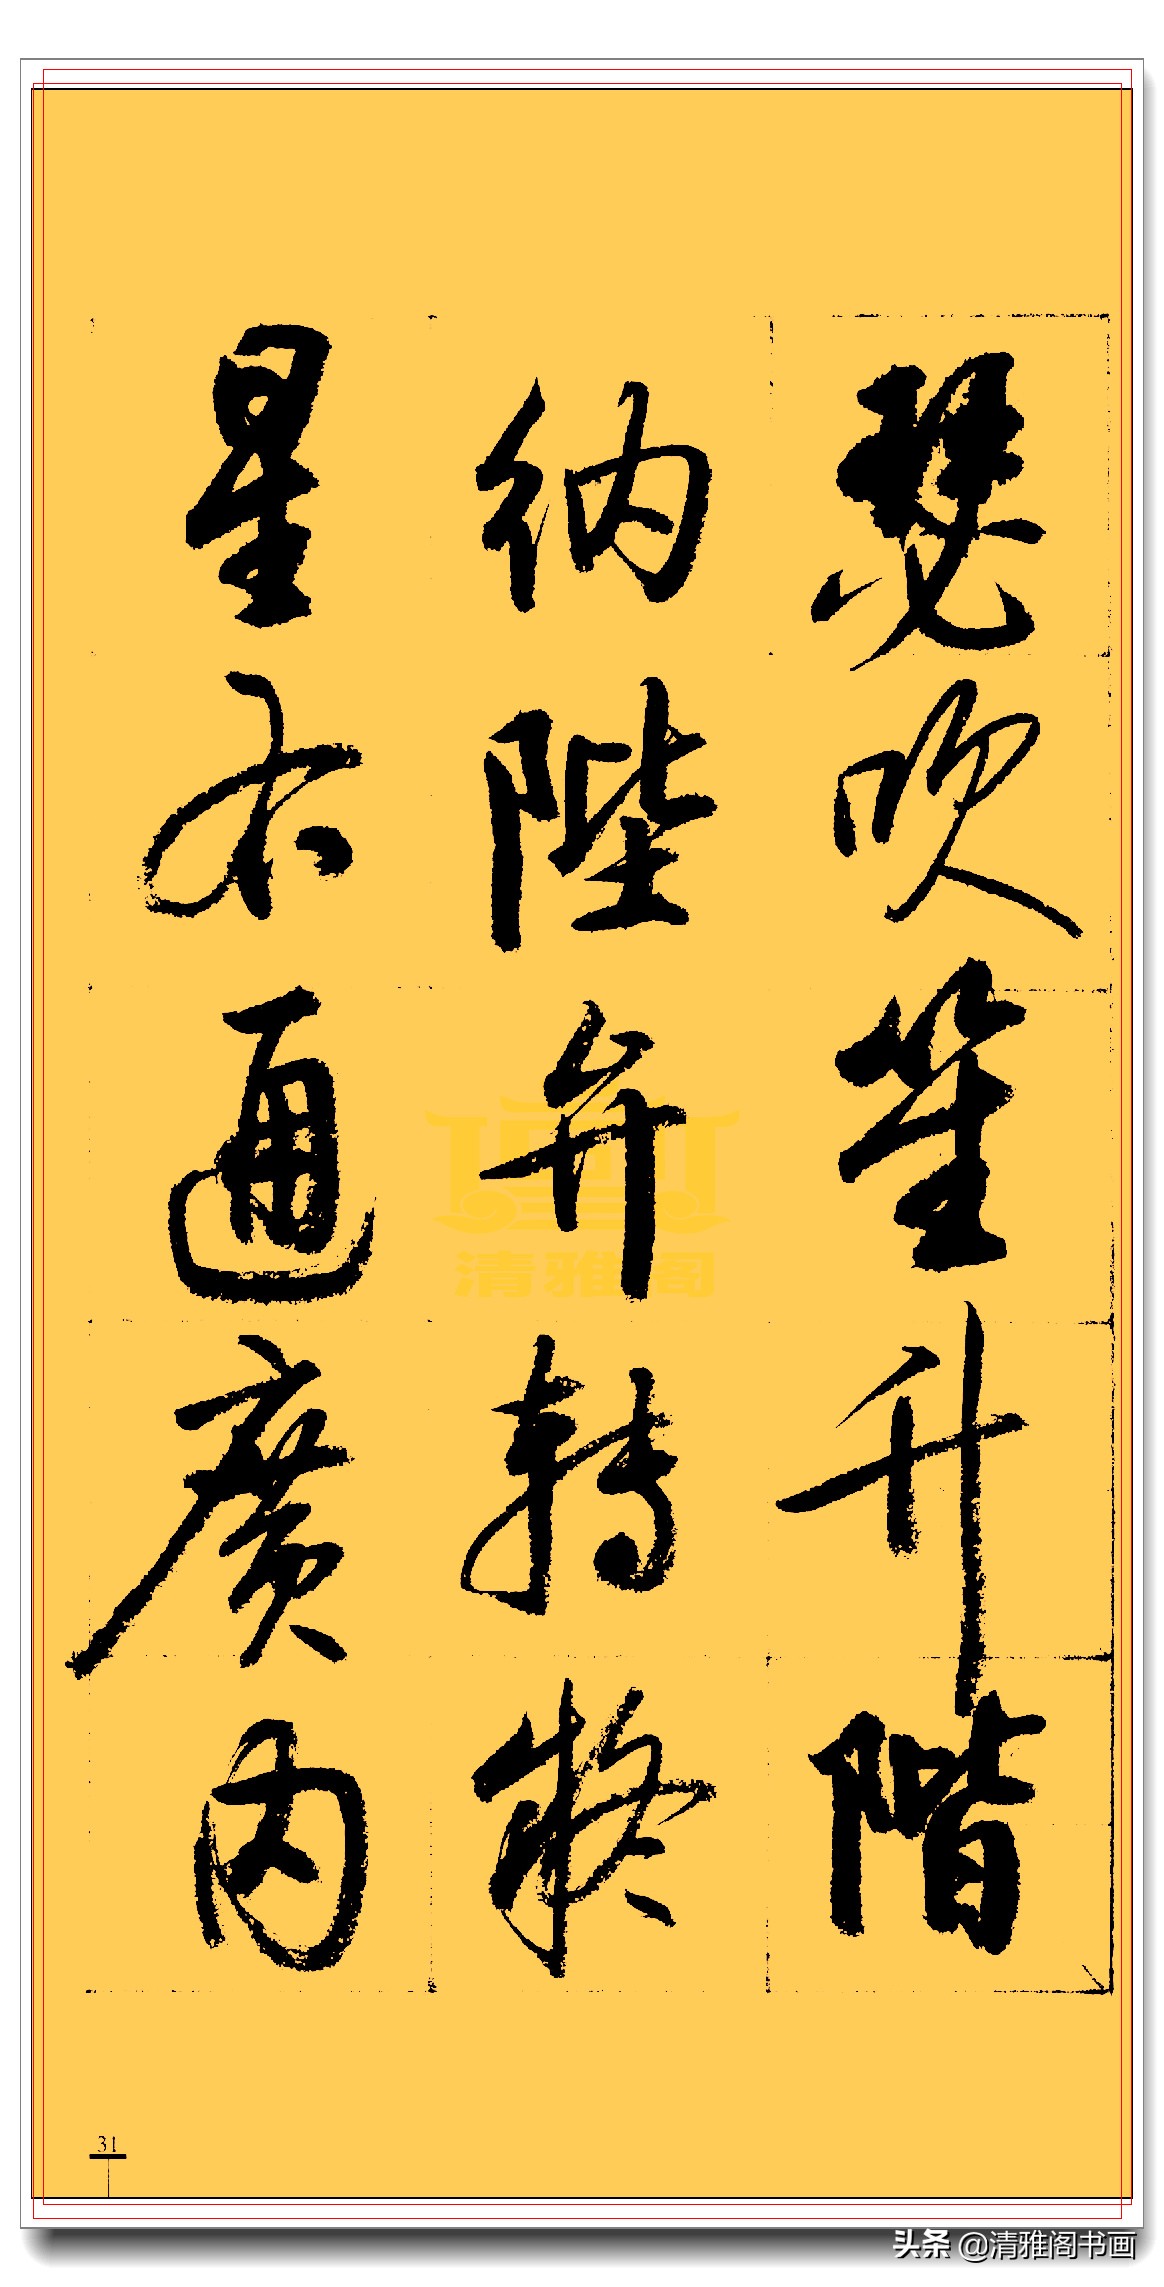 瑟吹笙升階
納陛弁轉疑
星右通廣內
清雅阁
31
头条 @清雅阁书画